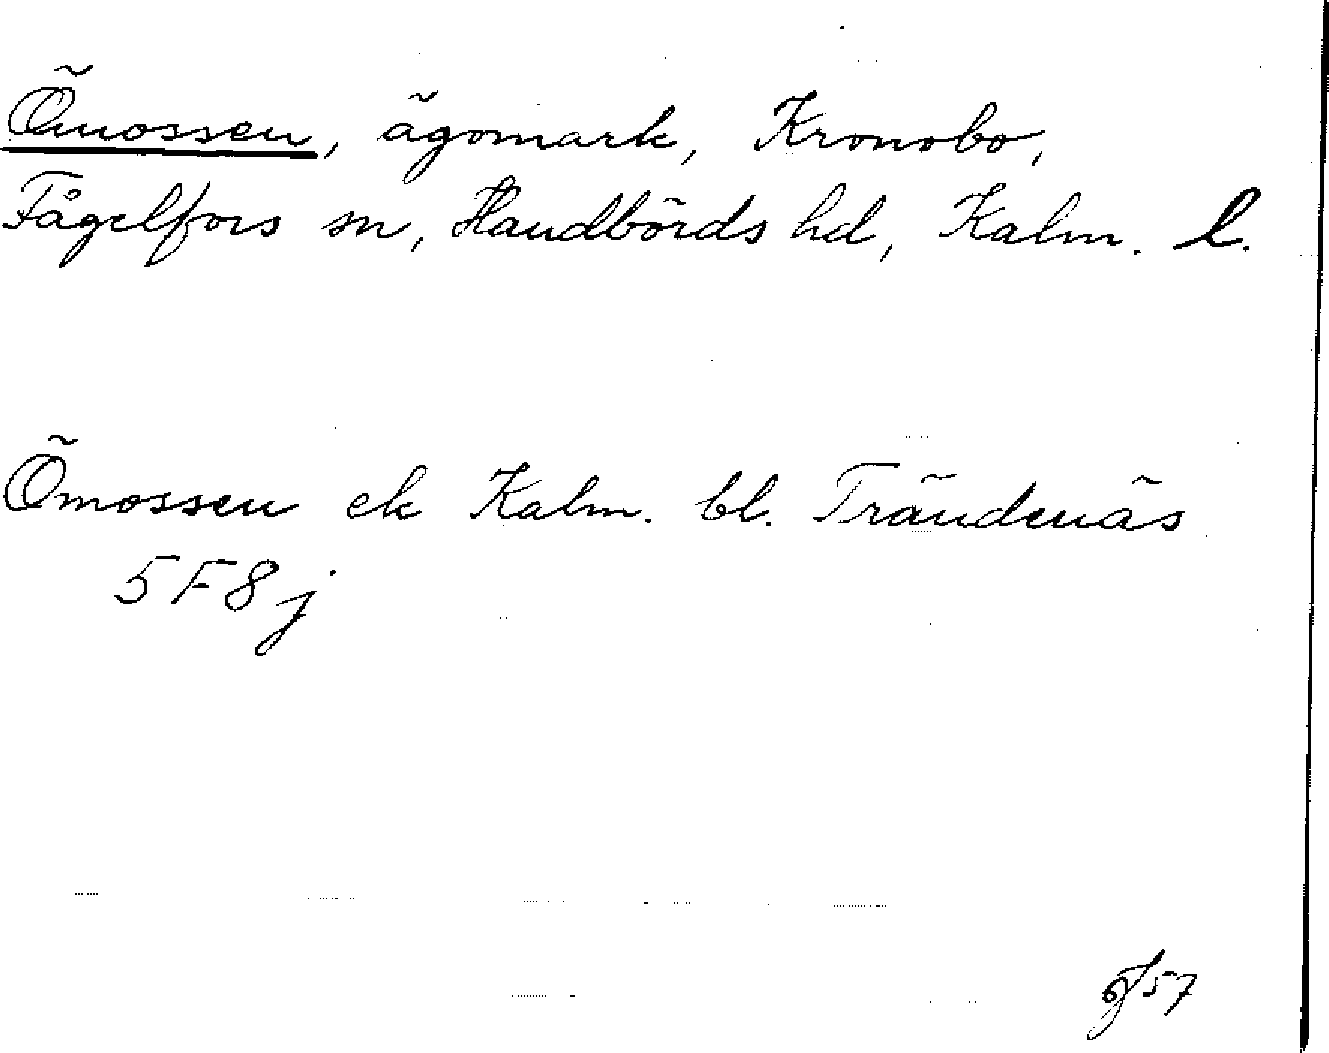 Ömossen, ägomark, Kronobo,
Fågelfors sn, Handbörds hd, Kalm. l.
Ömossen ek Kalm. bl. Trändenäs
5F8j